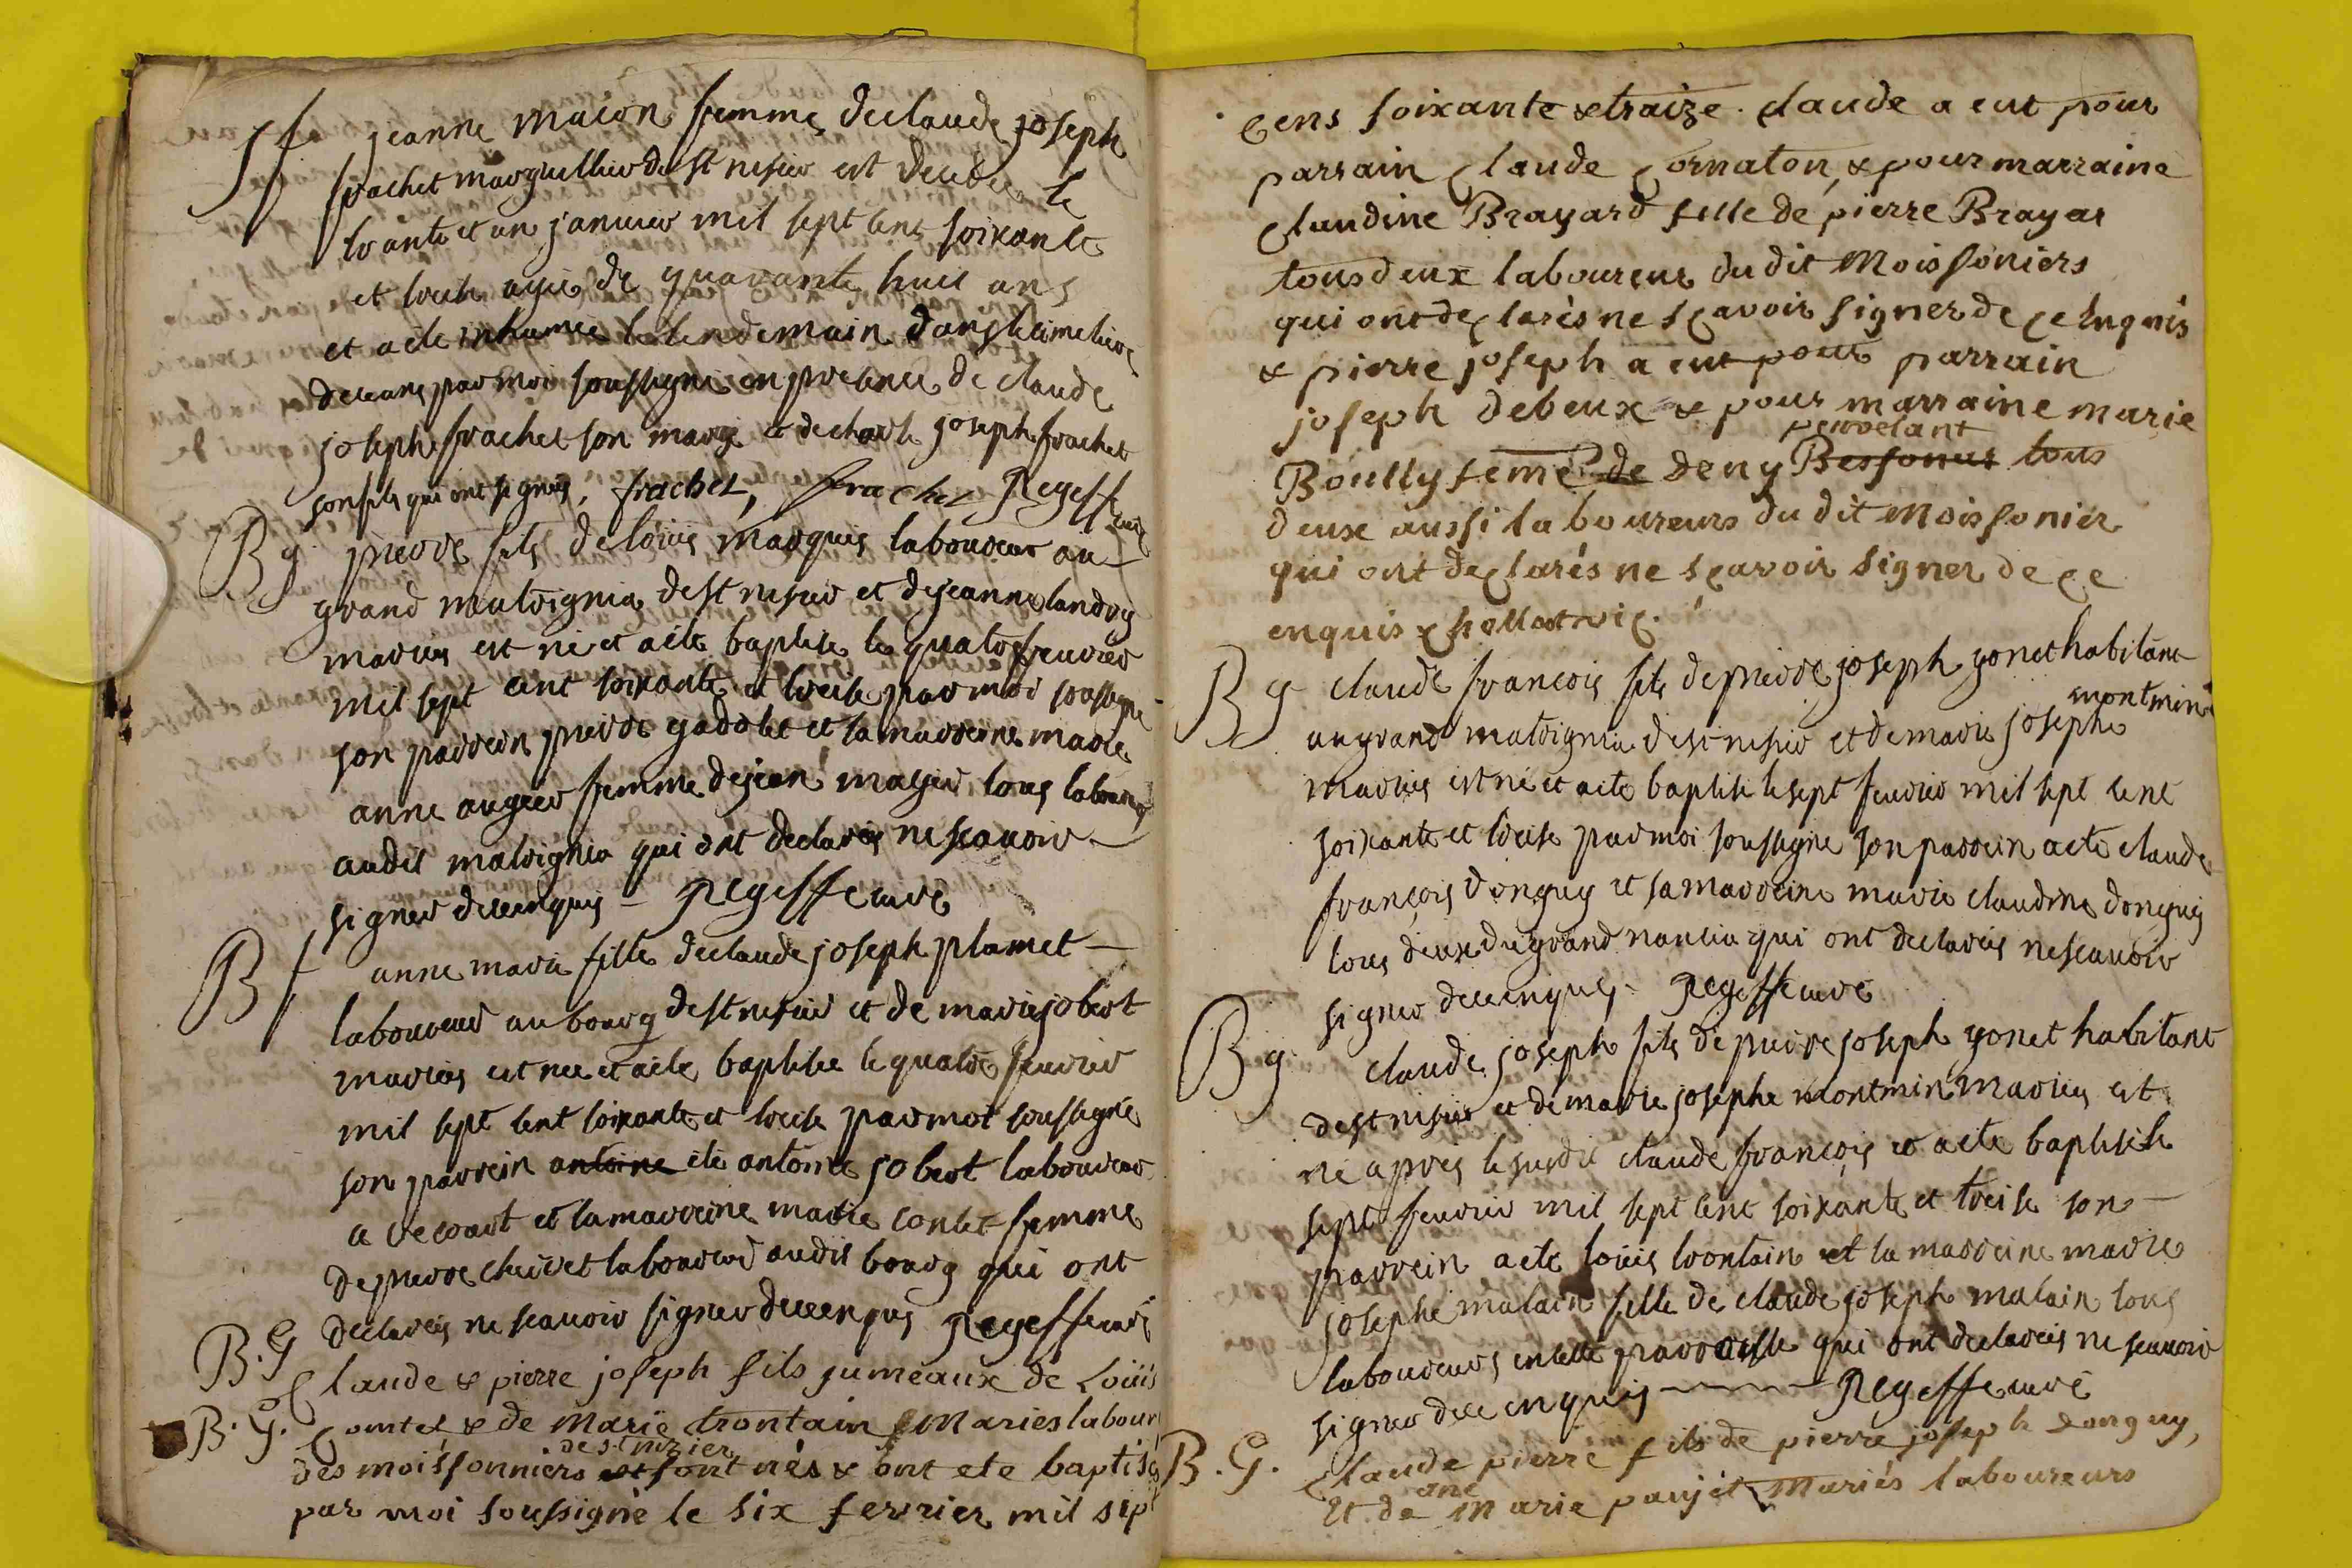 Sf jeanne maçon femme de claude joseph
frachet marguillier de st nisier est decedee le
trante et un janvier mil sept cent soixante
et treise agée de quarante huit ans
et a été inhumée le lendemain dans le cimetiere
de ceans par moi soussigné en presence de claude
joseph frachet son mary et de charle joseph frachet
son fils qui ont signés, frachet, frachet Regeffe curé
B g pierre fils de loüis marquis laboureur au
grand malvignia de st nisier et de jeanne landry
mariés est né et a été baptise le quatre fevrier
mil sept cent soixante et treise par moi soussigné
son parrein pierre gadolet et la marreine marie
anne augier femme de jean mayer tous labour
audit malvignia qui ont declarés ne scavoir
signer de ce enquis Regeffe curé
B f anne marie fille de claude joseph plamet
laboureur au bourg de st nisier et de marie jobert
mariés est née et a été baptisée le quatre fevrier
mil sept cent soixante et treise par moi soussigné
son parrein antoine été antoine jobert laboureur
a et la marreine marie contet femme
de pierre laboureur audit bourg qui ont
declarés ne scavoir signer de ce enquis Regeffe curé
B.G Claude & pierre joseph fils jumeaux de Loüis
B.G. Comtet & de Marie trontain Mariés labour
de st nizier
des moissonniers sont nés & ont ete baptisés
par moi soussigné le six fevrier mil sept
cens soixante & traize. Claude a eut pour
parrain Claude Cornaton, & pour marraine
Claudine Brayard fille de pierre Brayar
tous deux laboureur du dit Moissoniers
qui ont declarés ne scavoir signer de ce Enquis
& pierre joseph a eut pour parrain
joseph debeux & pour marraine marie
pervelant
Boully feme de deny Bessonus tous
deux aussi laboureurs du dit Moissonier
qui ont declarés ne scavoir signer de ce
enquis
B g claude françois fils de pierre joseph yonet habitant
montmin
au grand malvignia de st nisier et de marie josephe
mariés est né et a été baptisé le sept fevrier mil sept cent
soixante et treise par moi soussigné son parrein a été claude
françois donguy et sa marreine marie claudine donguy
tous deux du grand nancia qui ont declarés ne scavoir
signer de ce enquis. Regeffe curé
B g. claude joseph fils de pierre joseph yonet habitant
de st nisier et de marie josephe montmin mariés est
né apres le susdit claude françois et a été baptisé le
sept fevrier mil sept cent soixante et treise son
parrein a été loüis trontain et la marreine marie
josephe malain fille de claude joseph malain tous
laboureurs en cette parroisse qui ont declarés ne scavoir
signer de ce enquis Regeffe curé
B.G. Claude pierre fils de pierre joseph donguy,
ane
Et de Marie paujet Mariés laboureurs